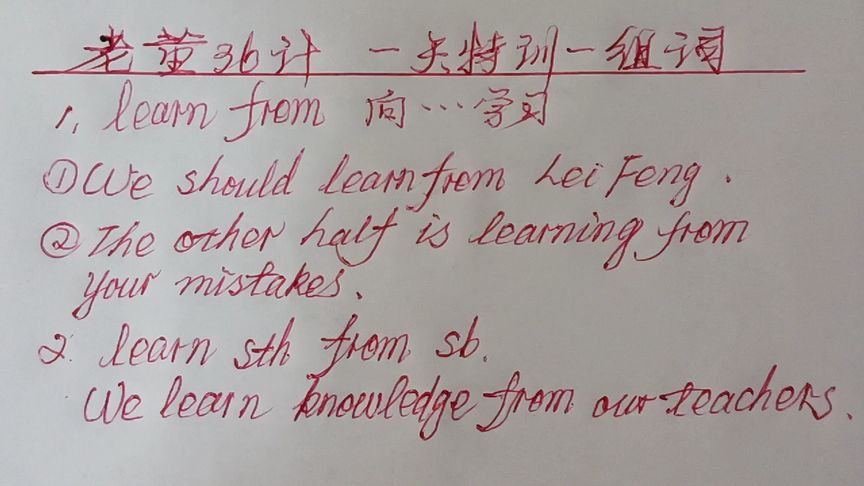 老董36计 一天特训一组词
1, learn from 向…学习
①We should learn from Lei Feng.
②The other half is learning from
your mistakes.
2. learn sth from sb.
We learn knowledge from our teachers.